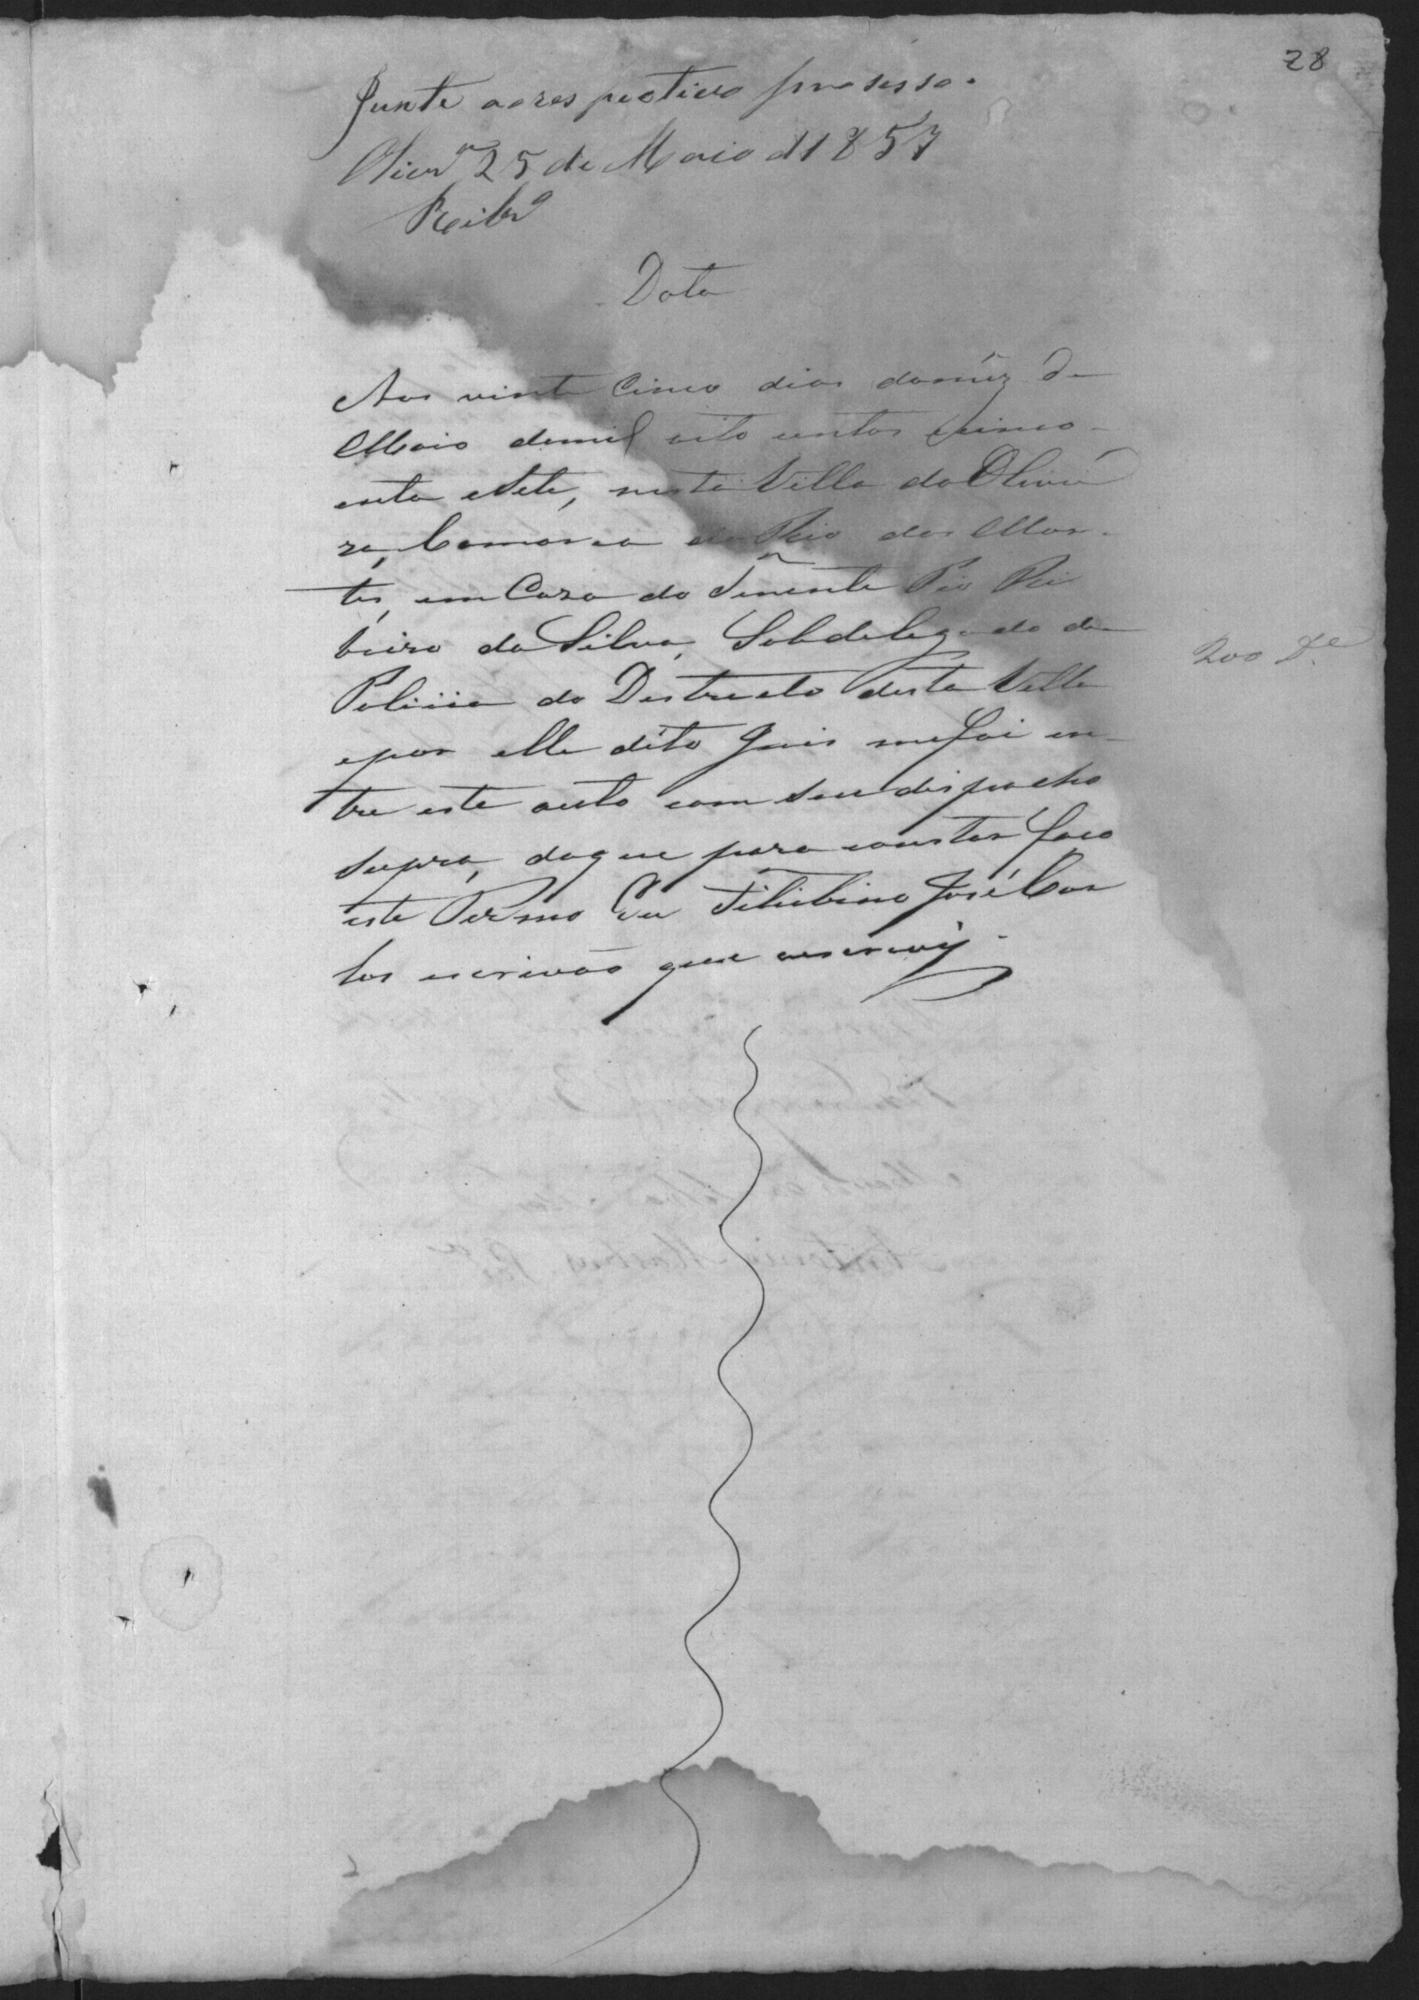 28
Junte ao respectivo processo.
Olivrª 25 de Maio d 1857
Ribrº
Data
Aos vinte cinco dias do mêz de
Maio de mil oito centos e cinco-
enta e Sete, nesta Villa da Olivei
ra, Comarca do Rio das Mor-
tes, em Caza do Tenente Pio Ri
beiro da Silva, Subdelegado de
Policia do Destricto desta Villa
e por elle dito Juis me foi en-
tre este auto com seu dispacho
supra, do que para constar faco
este Termo Eu José Car
los escrivão que escrevÿ.
200 D.ᵉ